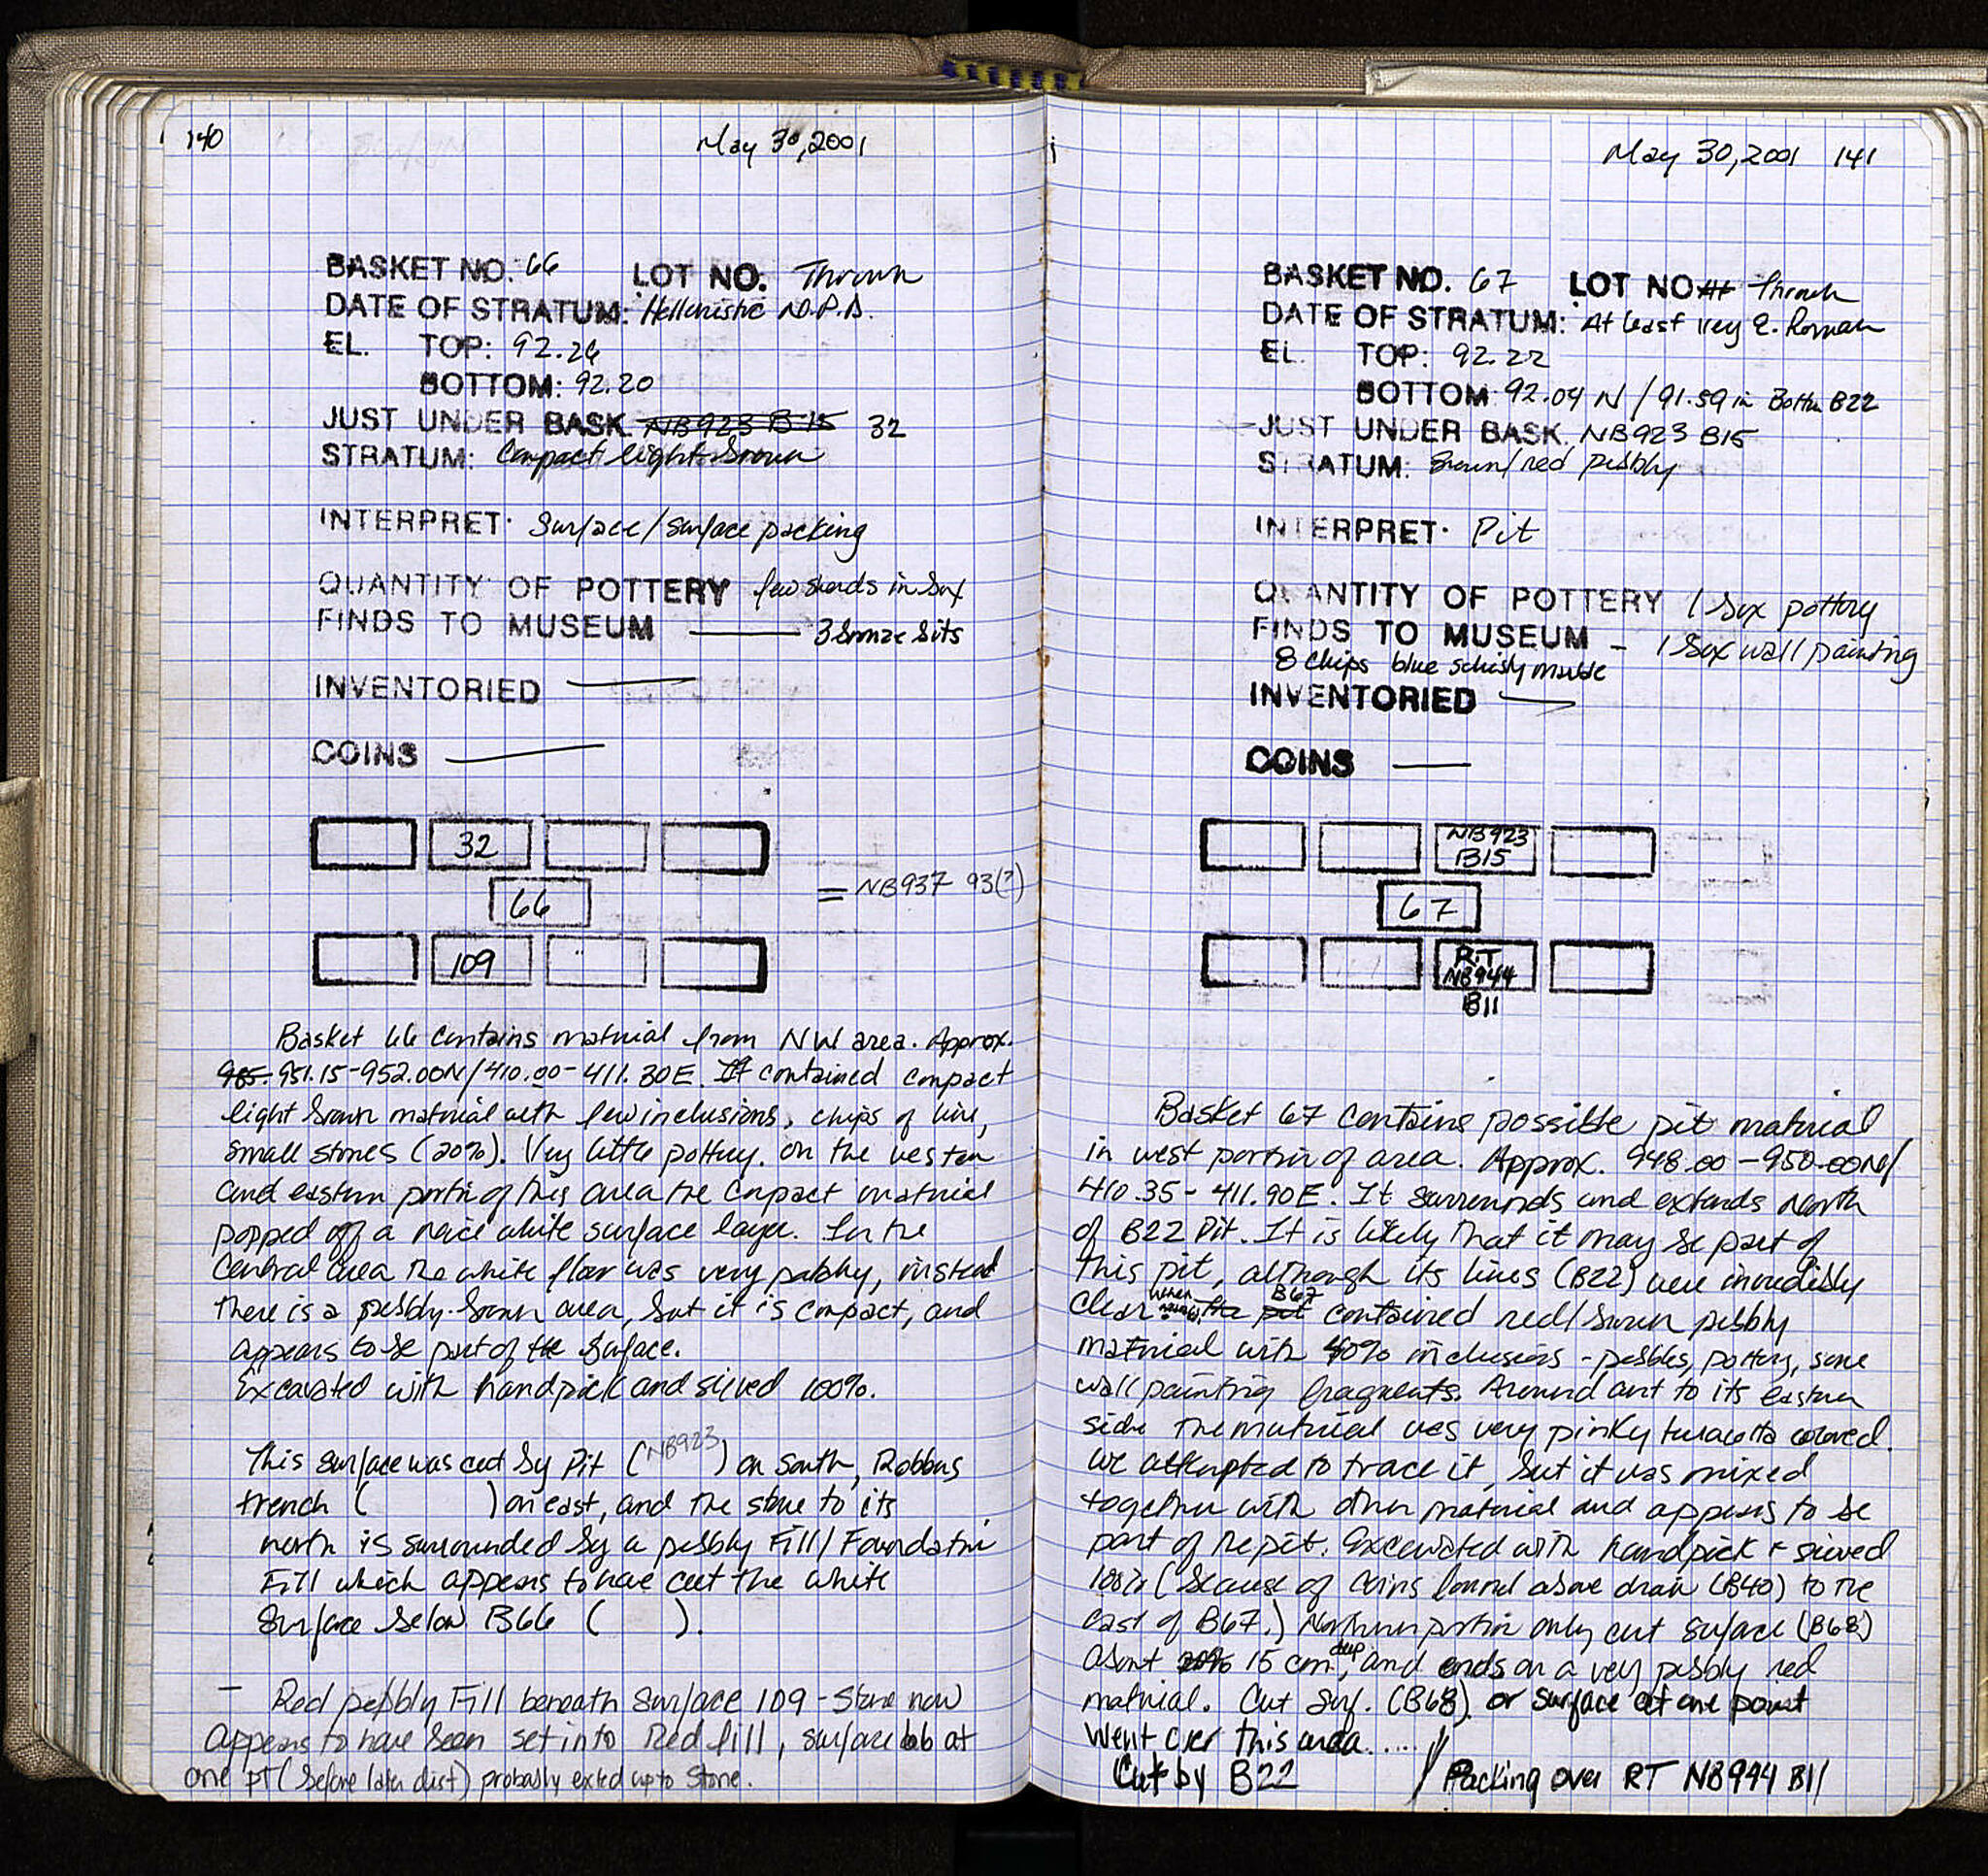 140 May 30, 2001
BASKET NO. 66 LOT NO: Thrown
DATE OF STRATUM: Hellenistic N.P.D.
EL. TOP: 92.26
BOTTOM: 92.20
JUST UNDER BASK. NB923 B15 32
STRATUM: Compact light brown
INTERPRET· Surface/surface packing
QUANTITY OF POTTERY few sherds in box
FINDS TO MUSEUM — 3 bronze bits
INVENTORIED —
COINS —
32
66 = NB937 93(?)
109
Basket 66 contains material from NW area. Approx.
985. 951.15-952.00N/410.00-411.30E. It contained compact
light brown material with few inclusions, chips of lime,
small stones (20%). Very little pottery. On the western
and eastern portion of this area the compact material
popped off a nice white surface layer. In the
central area the white floor was very patchy, instead
there is a pebbly brown area, but it is compact, and
appears to be part of the surface.
Excavated with handpick and sieved 100%.
This surface was cut by Pit (NB923 ) on south, Robbing
trench ( ) on east, and the stone to its
north is surrounded by a pebbly Fill/Foundation
Fill which appears to have cut the white
surface below B66 ( ).
— Red pebbly Fill beneath surface 109 - Stone now
appears to have been set into Red fill, surface 66 at
one pt (before later dist) probably exted up to stone.
May 30, 2001 141
BASKET NO. 67 LOT NO Thrown
DATE OF STRATUM: At least very E. Roman
EL. TOP: 92.22
BOTTOM: 92.04 N / 91.59 in Bottom B22
JUST UNDER BASK. NB923 B15
STRATUM: Brown/red pebbly
INTERPRET· Pit
QUANTITY OF POTTERY 1 box pottery
FINDS TO MUSEUM – 1 box wall painting
8 chips blue schisty marble
INVENTORIED —
COINS —
NB923
B15
67
R.T
NB944
B11
Basket 67 contains possible pit material
in west portion of area. Approx. 948.00-950.00N/
410.35-411.90E. It surrounds and extends north
of B22 Pit. It is likely that it may be part of
this pit, although its lines (B22) were incredibly
clear. the pit B67 contained red/brown pebbly
material with 40% inclusions - pebbles, pottery, some
wall painting fragments. Around and to its eastern
side the material was very pinky terracotta colored.
We attempted to trace it, but it was mixed
together with other material and appears to be
part of the pit. Excavated with handpick + sieved
100% (because of coins found above drain (B40) to the
east of B67.) Northern portion only cut surface (B68)
about 20% 15 cm deep, and ends on a very pebbly red
material. Cut surf. (B68) or surface at one point
went over this area.....
Cut by B22 // Packing over RT NB944 B11